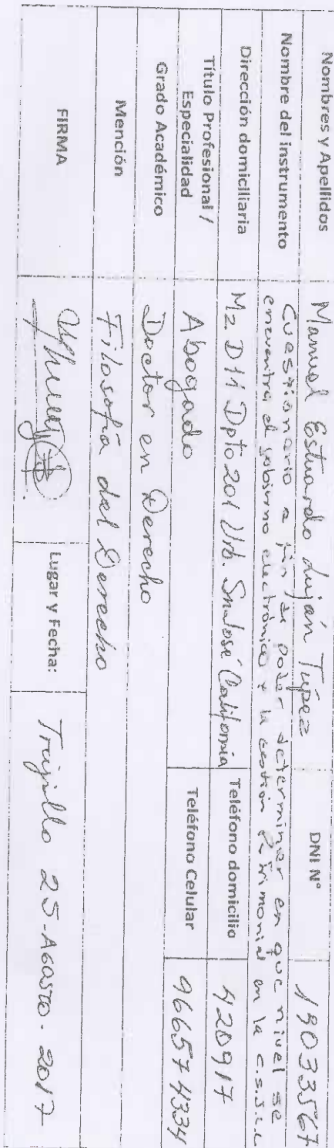 Nombres y Apellidos Manuel Estuardo Luján Túpez DNI N° 18033567
Nombre del instrumento Cuestionario a fin de poder determinar en que nivel se
encuentra el gobierno electrónico y la gestión Patrimonial en la C.S.J.
Dirección domiciliaria Mz D11 Dpto 201 Urb. SnJosé California Teléfono domicilio 420917
Título Profesional / Especialidad Abogado Teléfono Celular 966574334
Grado Académico Doctor en Derecho
Mención Filosofía del Derecho
FIRMA Lugar y Fecha: Trujillo 25-Agosto-2017